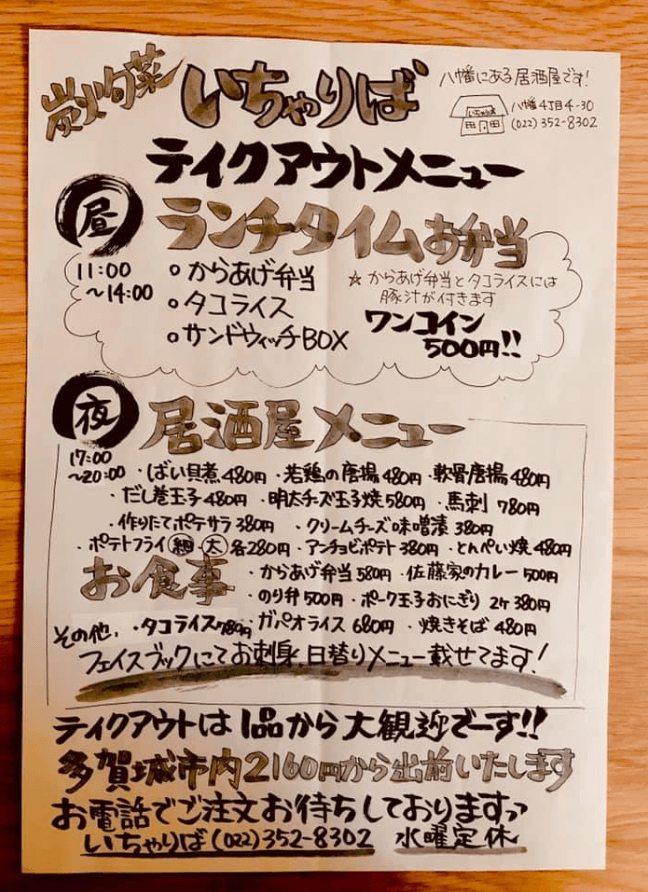 炭火旬菜 いちゃりば
八幡にある居酒屋です!
いちゃりば
八幡4丁目4-30
(022)352-8302
テイクアウトメニュー
昼 ランチタイムお弁当
11:00
~14:00
○ からあげ弁当
○ タコライス
○ サンドウィッチBOX
☆ からあげ弁当とタコライスには
豚汁が付きます
ワンコイン
500円!!
夜 居酒屋メニュー
17:00
~20:00
・ばい貝煮480円 ・若鶏の唐揚480円 ・軟骨唐揚480円
・だし巻玉子480円 ・明太チーズ玉子焼580円 ・馬刺 780円
・作りたてポテサラ380円 ・クリームチーズ味噌漬380円
・ポテトフライ 細・太 各280円 ・アンチョビポテト380円 ・とんぺい焼480円
お食事 ・からあげ弁当580円 ・佐藤家のカレー500円
・のり弁500円 ・ポーク玉子おにぎり 2ケ380円
その他、・タコライス780円 ガパオライス 680円 ・焼きそば 480円
フェイスブックにてお刺身、日替りメニュー載せてます!
テイクアウトは1品から大歓迎でーす!!
多賀城市内2160円から出前いたします
お電話でご注文お待ちしておりますっ
いちゃりば(022)352-8302 水曜定休